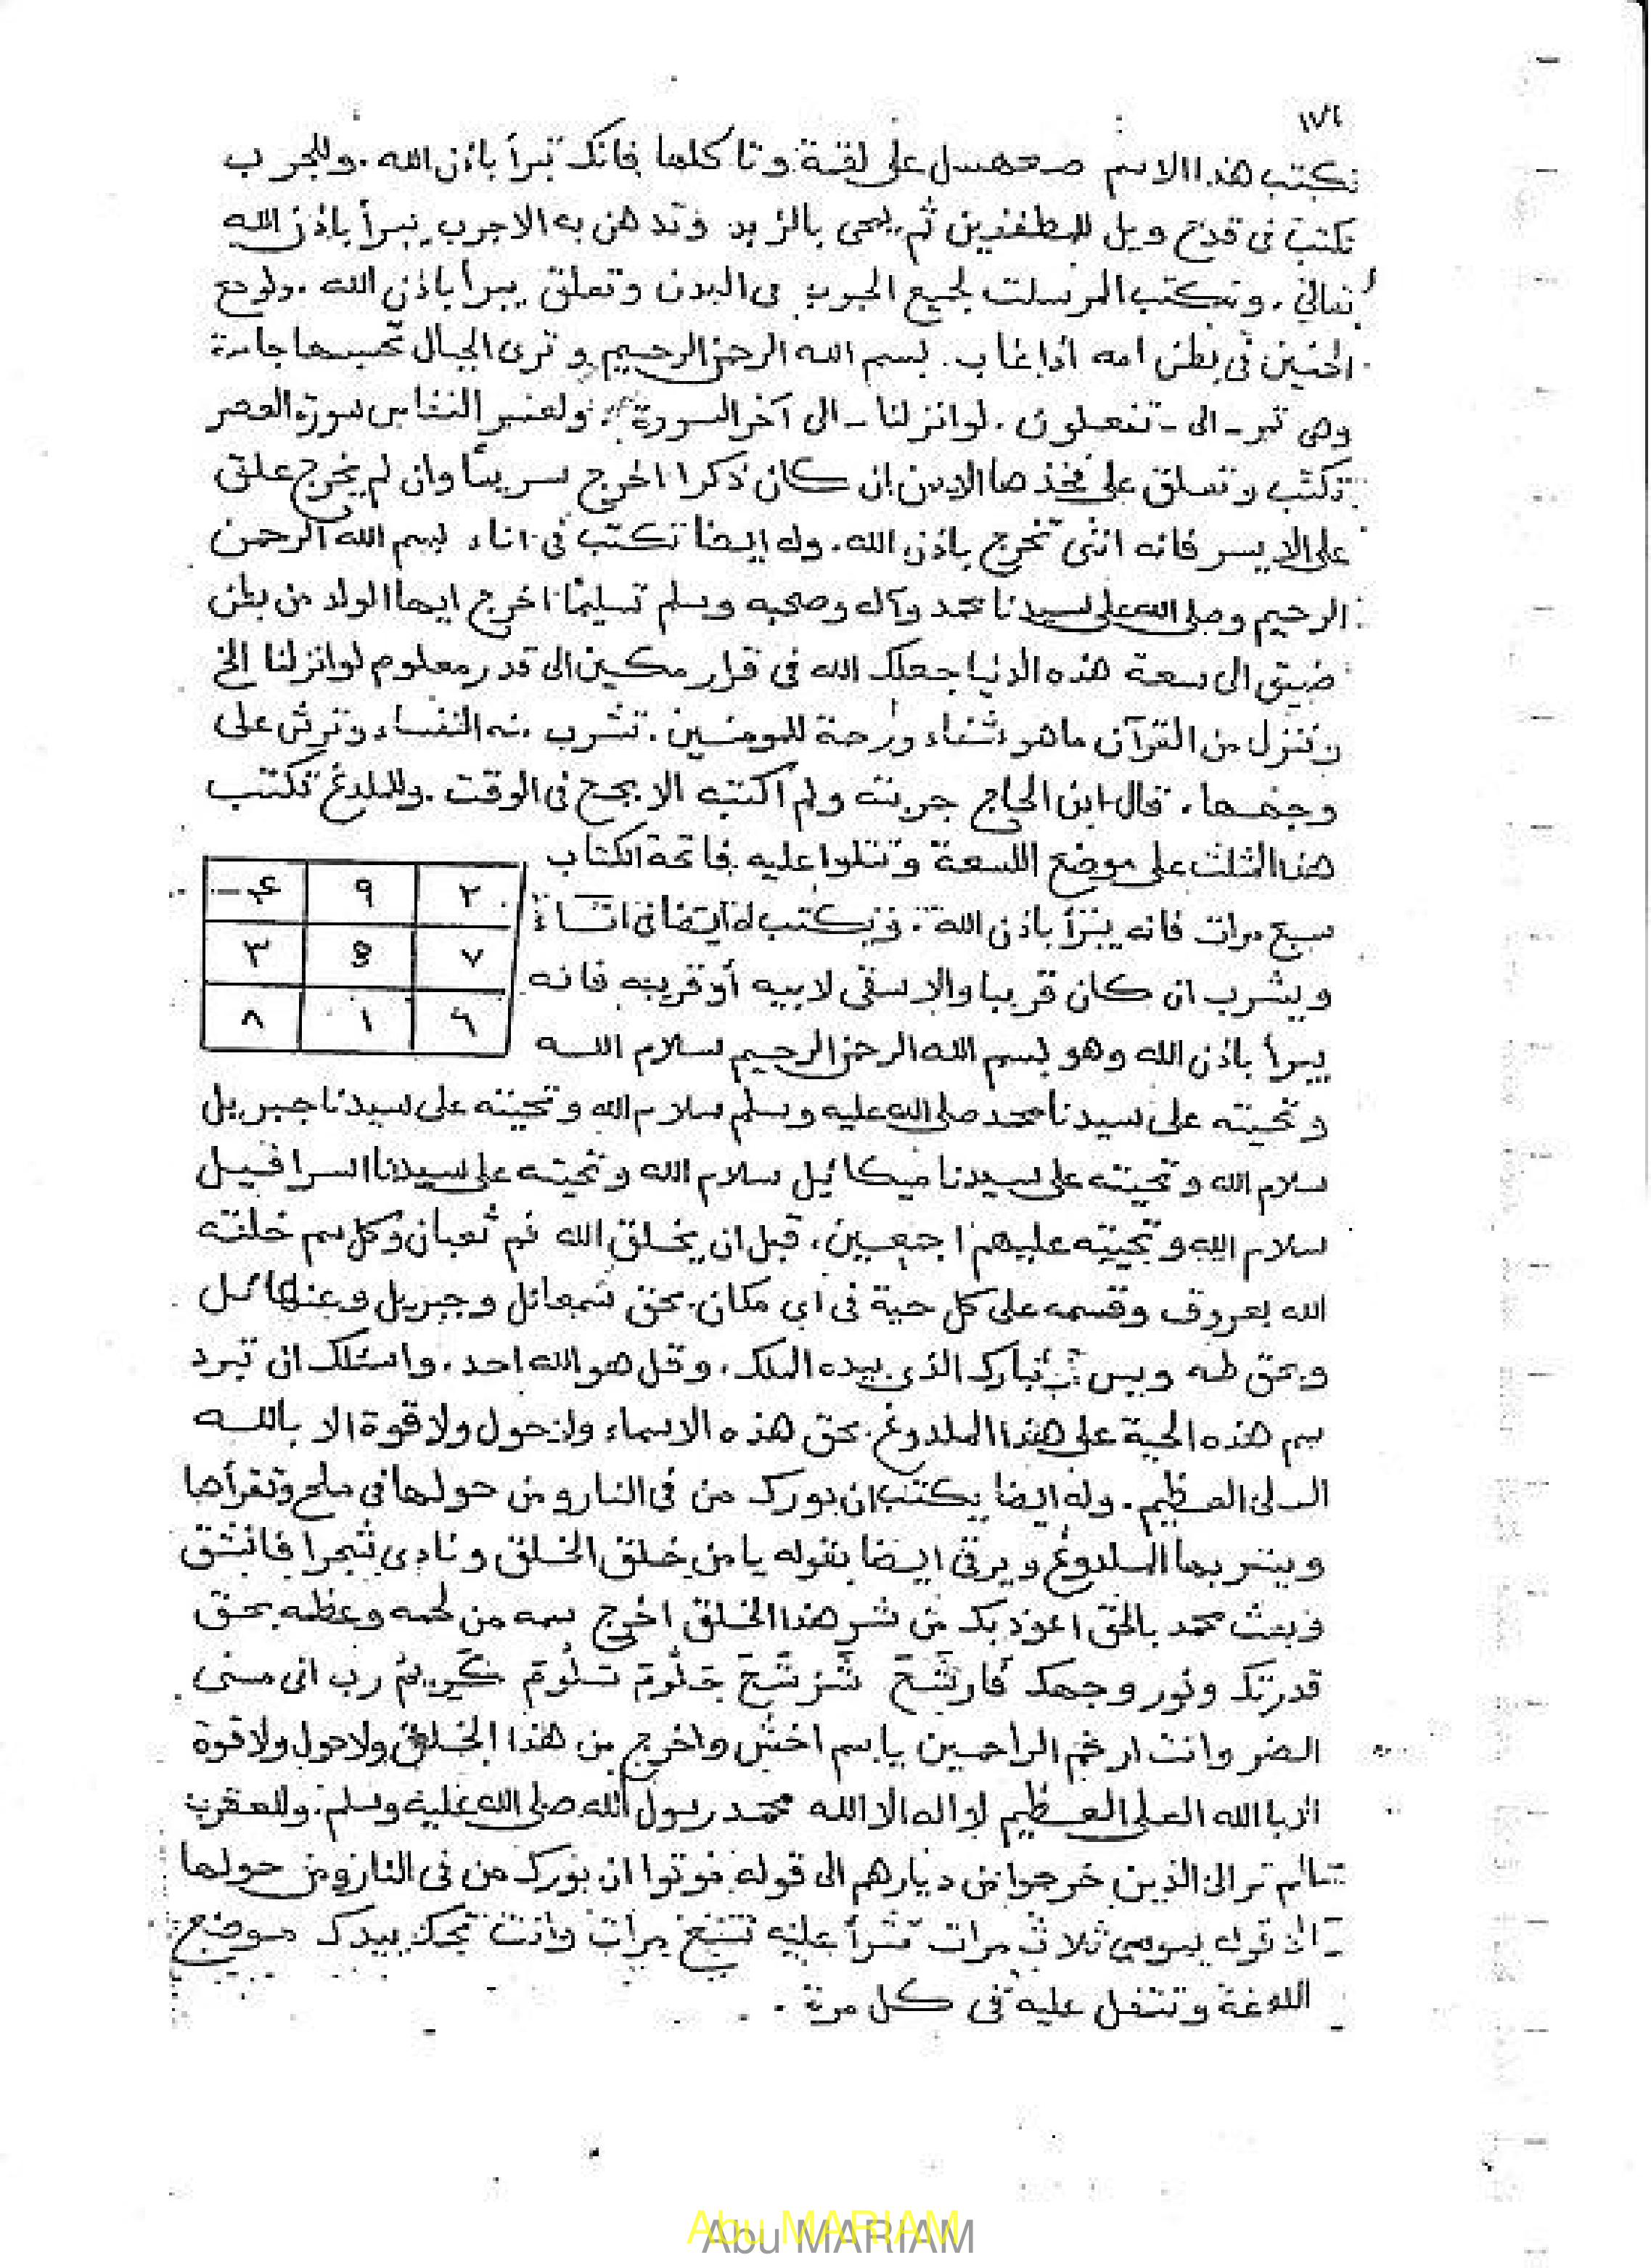 ١٧٤
تكتب هذا الاسم صعهسل على لقمة وتاكلها فانك تبرأ باذن الله . وللجرب
تكتب فى قدح ويل للمطففين ثم يمحى بالزبد وتدهن به الاجرب يبرأ باذن الله
تعالى . وتكتب المرسلت لجميع الجرب فى البدن وتعلق يبرأ باذن الله . ولوجع
الجنين فى بطن امه اذا غاب . بسم الله الرحمن الرحيم وترى الجبال تحسبها جامدة
وهى تمر - الى - تفعلون . لوانزلنا - الى آخر السورة . ولعسر النفاس سورة العصر
تكتب وتعلق على فخذها الايمن ان كان ذكرا اخرج سريعا وان لم يخرج علق
على الايسر فانه انثى تخرج باذن الله . وله ايضا تكتب فى اناء بسم الله الرحمن
الرحيم وصلى الله على سيدنا محمد وآله وصحبه وسلم تسليما اخرج ايها الولد من بطن
ضيق الى سعة هذه الدنيا جعلك الله فى قرار مكين الى قدر معلوم لوانزلنا الخ
وننزل من القرآن ما هو شفاء ورحمة للمومنين . تشرب منه النفساء وترش على
وجهها . قال ابن الحاج جربته ولم اكتبه الا بحج فى الوقت . وللملدغ تكتب
هذا المثلث على موضع اللسعة وتتلوا عليه فاتحة الكتاب
سبع مرات فانه يبرأ باذن الله . وتكتب له ايضا فى اناء
ويشرب ان كان قريبا والا سقى لابيه أو قريبه فانه
يبرأ باذن الله وهو بسم الله الرحمن الرحيم سلام الله
٢ ٩ ٤
٧ ٥ ٣
٦ ١ ٨
وتحيته على سيدنا محمد صلى الله عليه وسلم سلام الله وتحيته على سيدنا جبريل
سلام الله وتحيته على سيدنا ميكائيل سلام الله وتحيته على سيدنا اسرافيل
سلام الله وتحيته عليهم اجمعين ، قبل ان يخلق الله فم ثعبان وكل سم خلقته
الله بعروف وقسمه على كل حية فى اى مكان بحق شمعائل وجبريل
وبحق طه ويس تبارك الذى بيده الملك . وقل هو الله احد . واسئلك ان تبرد
سم هذه الحية على هذا الملدوغ بحق هذه الاسماء ولا حول ولا قوة الا بالله
العلى العظيم . وله ايضا يكتب ان بورك من فى النار ومن حولها فى ملح وتقرأها
الملدوغ ويرقى ايضا بقوله يا من خلق الخلق ونادى شجرا فانشق
وبعث محمد بالحق اعوذ بك من شر هذا الخلق اخرج سمه من لحمه وعظمه بحق
قدرتك ونور وجهك رب انى مسنى
الضر وانت ارحم الراحمين يا سم اخش واخرج من هذا الخلق ولا حول ولا قوة
الا بالله العلى العظيم لا اله الا الله محمد رسول الله صلى الله عليه وسلم . وللعقرب
الم تر الى الذين خرجوا من ديارهم الى قوله موتوا ان بورك من فى النار ومن حولها
الى قوله يموسى ثلاث مرات تقرأ عليه مرات وانت بيدك موضع
اللدغة وتتفل عليه فى كل مرة .
Abu MARIAM
Abu MARIAM